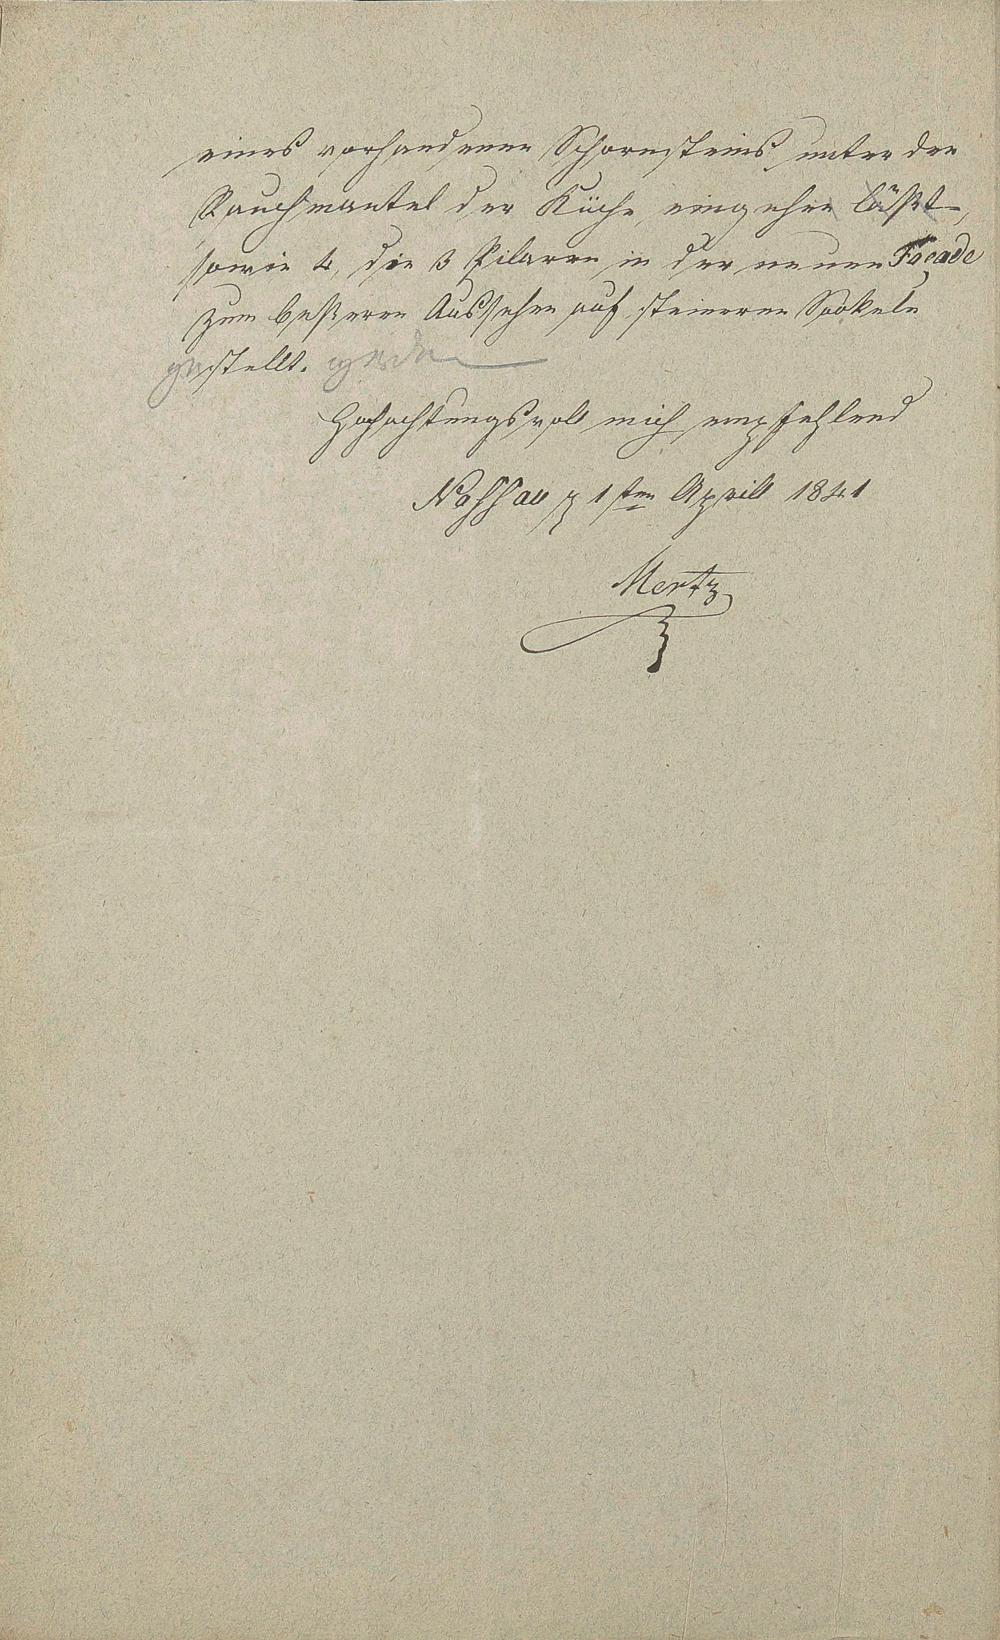 eines vorhandenen Schornsteins unter den
Rauchmantel der Küche, eingehen läßt,
sowie 4, die 3 Pilaren in der neuen Façade
zum beßeren Aussehen auf steinernen Sockeln
gestellt. werden
Hochachtungsvoll mich empfehlend
Nassau 1sten Aprill 1841
Mertz